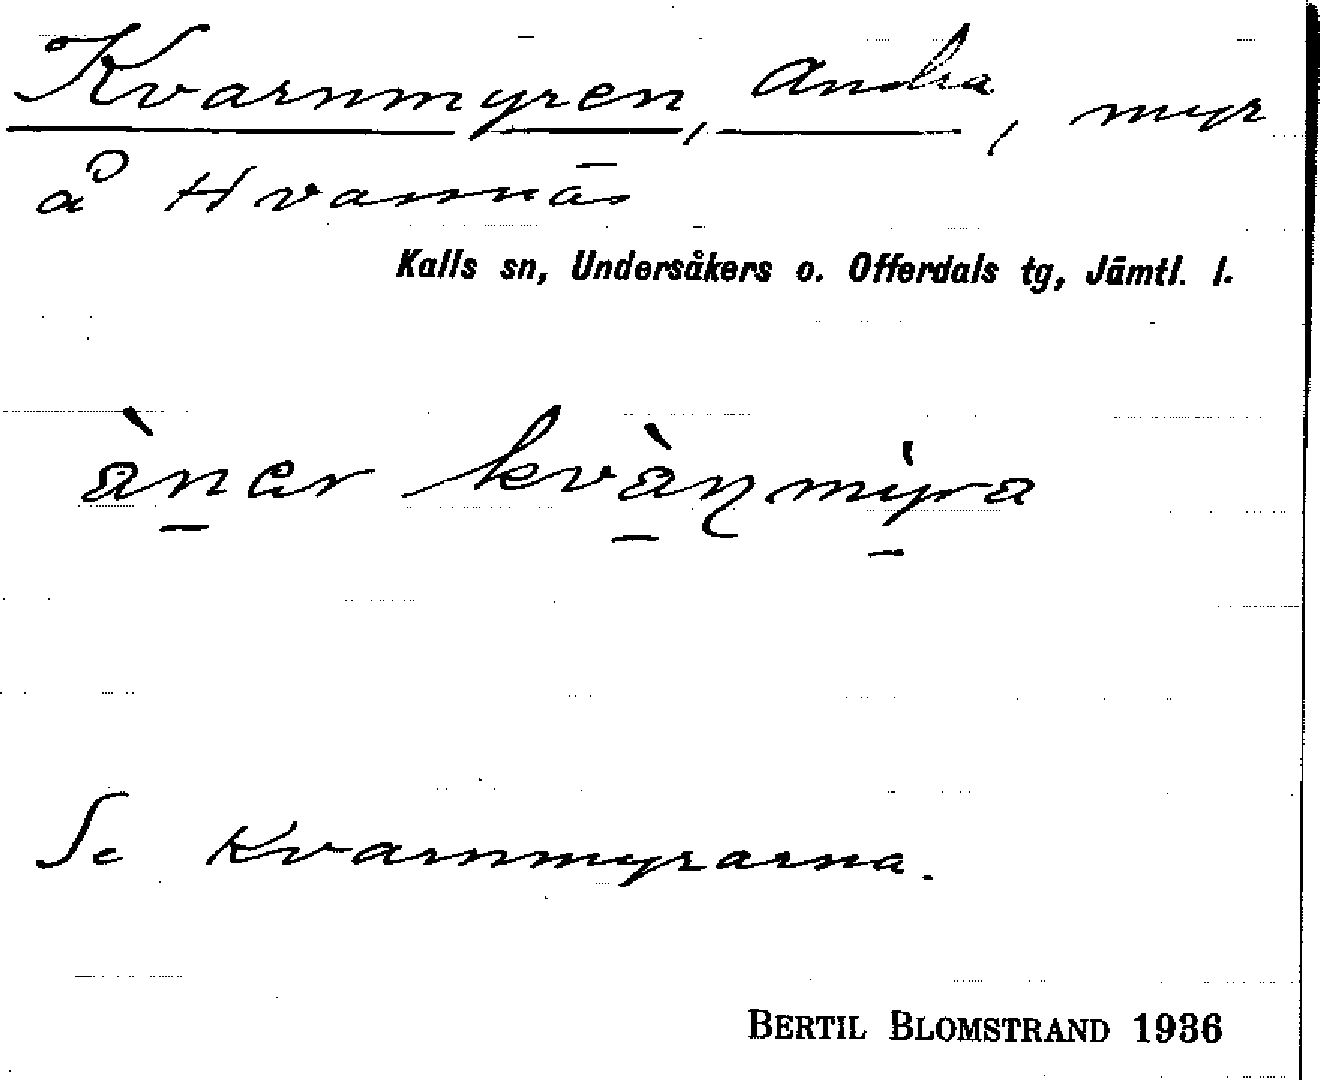 Kvarnmyren, Andra, myr
å Hvassnäs
Kalls sn, Undersåkers o. Offerdals tg, Jämtl. l.
kvàn̨mýra
Se Kvarnmyrarna.
BERTIL BLOMSTRAND 1936